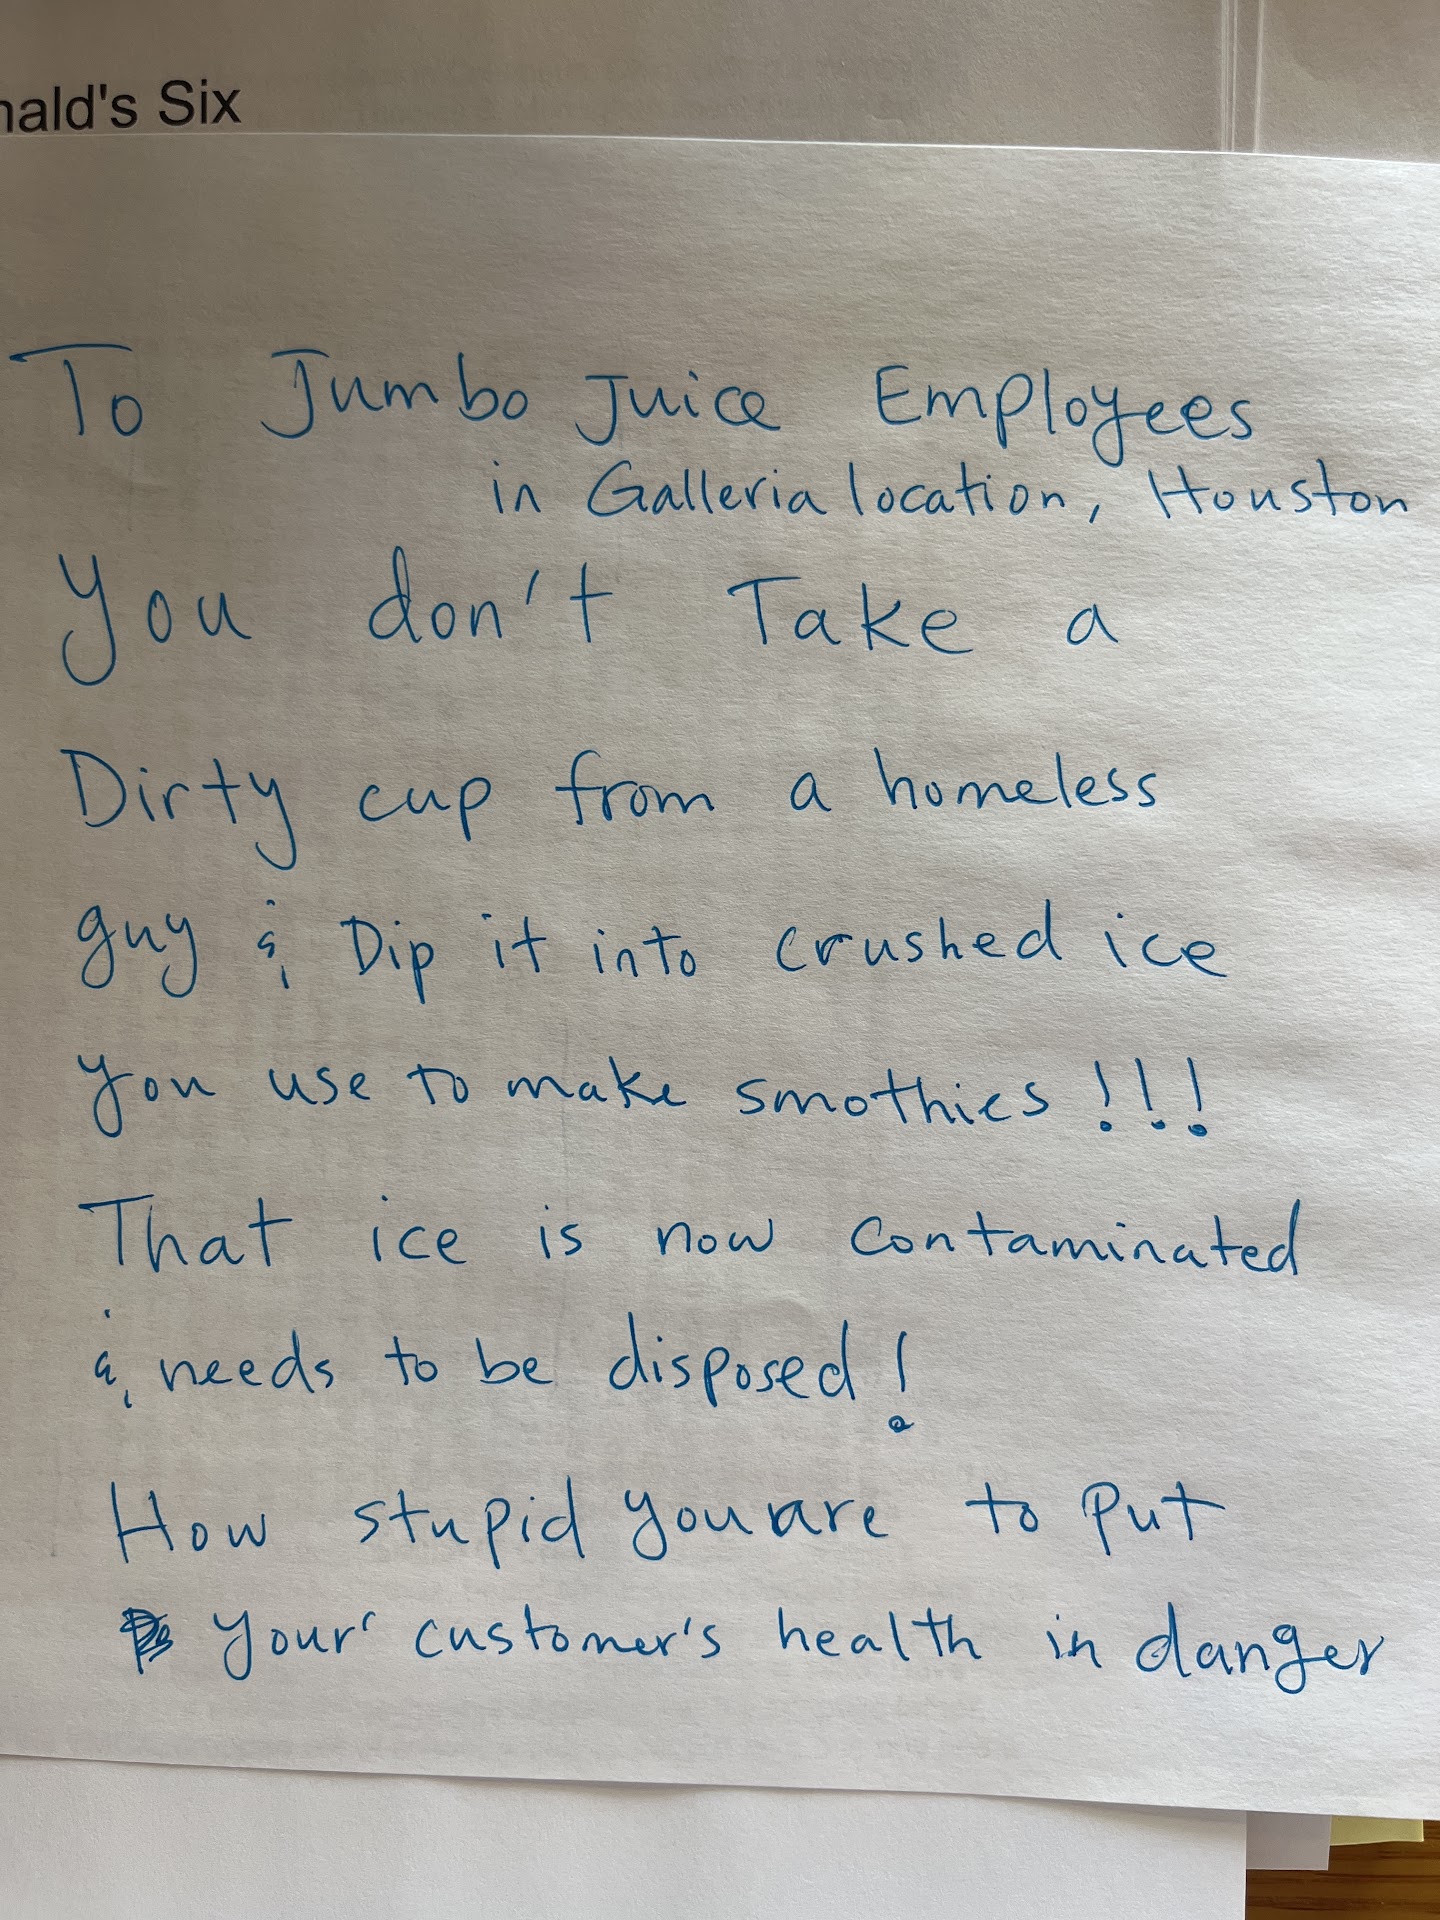 nald's Six
To Jumbo Juice Employees
in Galleria location, Houston
You don't Take a
Dirty cup from a homeless
guy & Dip it into crushed ice
you use to make smothies !!!
That ice is now contaminated
& needs to be disposed!
How stupid you are to put
your customer's health in danger